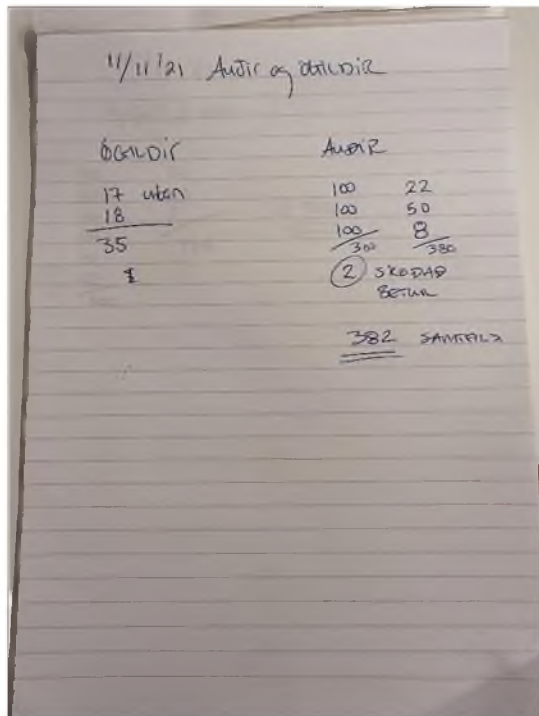 11/11 '21 Auðir og ÓGILDIR
ÓGILDIR
17 utan
18
35
1
AUÐIR
100 22
100 50
100 8
300 380
2 SKOÐAÐ
BETUR
382 SAMTALS